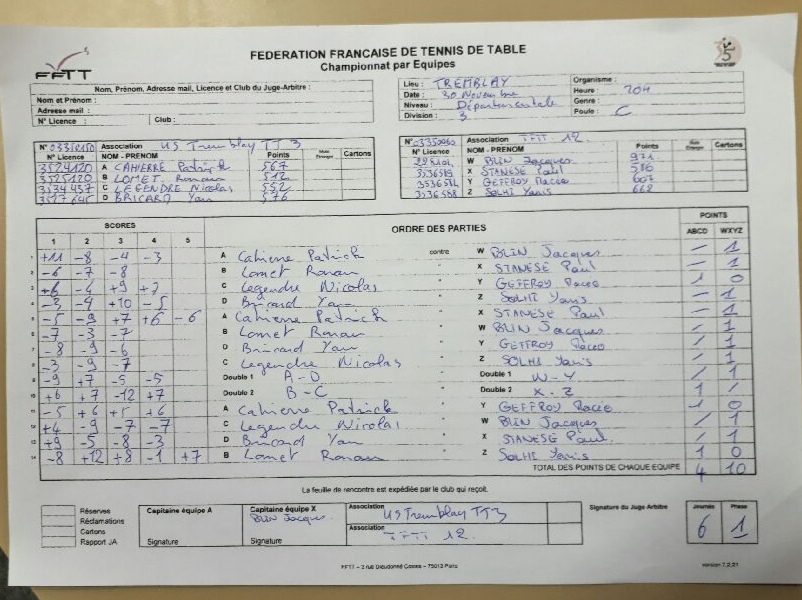 FEDERATION FRANCAISE DE TENNIS DE TABLE
Championnat par Equipes
FFTT
Nom, Prénom, Adresse mail, Licence et Club du Juge-Arbitre :
Nom et Prénom :
Adresse mail :
N° Licence : Club :
Lieu : TREMBLAY Organisme :
Date : 30 Novembre Heure : 20H
Niveau : Départementale Genre :
Division : 3 Poule : C
Association US Tremblay TT 3
N° Licence NOM - PRENOM Points Cartons
3529120 A CAHIERRE Patrick 567
3525120 B LOMET Ronan 512
3534437 C LEGENDRE Nicolas 552
D BRICARD Yan 576
Association TFTT 12
N° Licence NOM - PRENOM Points Cartons
W BLIN Jacques 971
X STANESE Paul 586
Y GEFFROY Pacéo 607
3536588 Z SOLHI Yanis 668
SCORES ORDRE DES PARTIES POINTS
1 2 3 4 5 ABCD WXYZ
1 +11 -8 -4 -3 A Cahierre Patrick contre W BLIN Jacques - 1
2 -6 -7 -8 B Lomet Ronan " X STANESE Paul - 1
3 +6 -6 +9 +7 C Legendre Nicolas " Y GEFFROY Pacéo 1 0
4 -3 -4 +10 -5 D Bricard Yan " Z SOLHI Yanis - 1
5 -5 -9 +7 +6 -6 A Cahierre Patrick " X STANESE Paul - 1
6 -7 -3 -7 B Lomet Ronan " W BLIN Jacques / 1
7 -8 -9 -6 D Bricard Yan " Y GEFFROY Pacéo / 1
8 -3 -9 -7 C Legendre Nicolas " Z SOLHI Yanis / 1
9 -9 +7 -5 -5 Double 1 A-D " Double 1 W-Y / 1
10 +6 +7 -12 +7 Double 2 B-C " Double 2 X-Z 1 /
11 -5 +6 +5 +6 A Cahierre Patrick " Y GEFFROY Pacéo 1 0
12 +4 -9 -7 -7 C Legendre Nicolas " W BLIN Jacques / 1
13 +9 -5 -8 -3 D Bricard Yan " X STANESE Paul / 1
14 -8 +12 +8 -1 +7 B Lomet Ronan " Z SOLHI Yanis 1 0
TOTAL DES POINTS DE CHAQUE EQUIPE 4 10
La feuille de rencontre est expédiée par le club qui reçoit.
Réserves
Réclamations
Cartons
Rapport JA
Capitaine équipe A
Signature
Capitaine équipe X
BLIN Jacques
Signature
Association US Tremblay TT3
Association TFTT 12
Signature du Juge Arbitre
Journée Phase
6 1
FFTT - 3 rue Dieudonné Costes - 75013 Paris
version 7.2.21